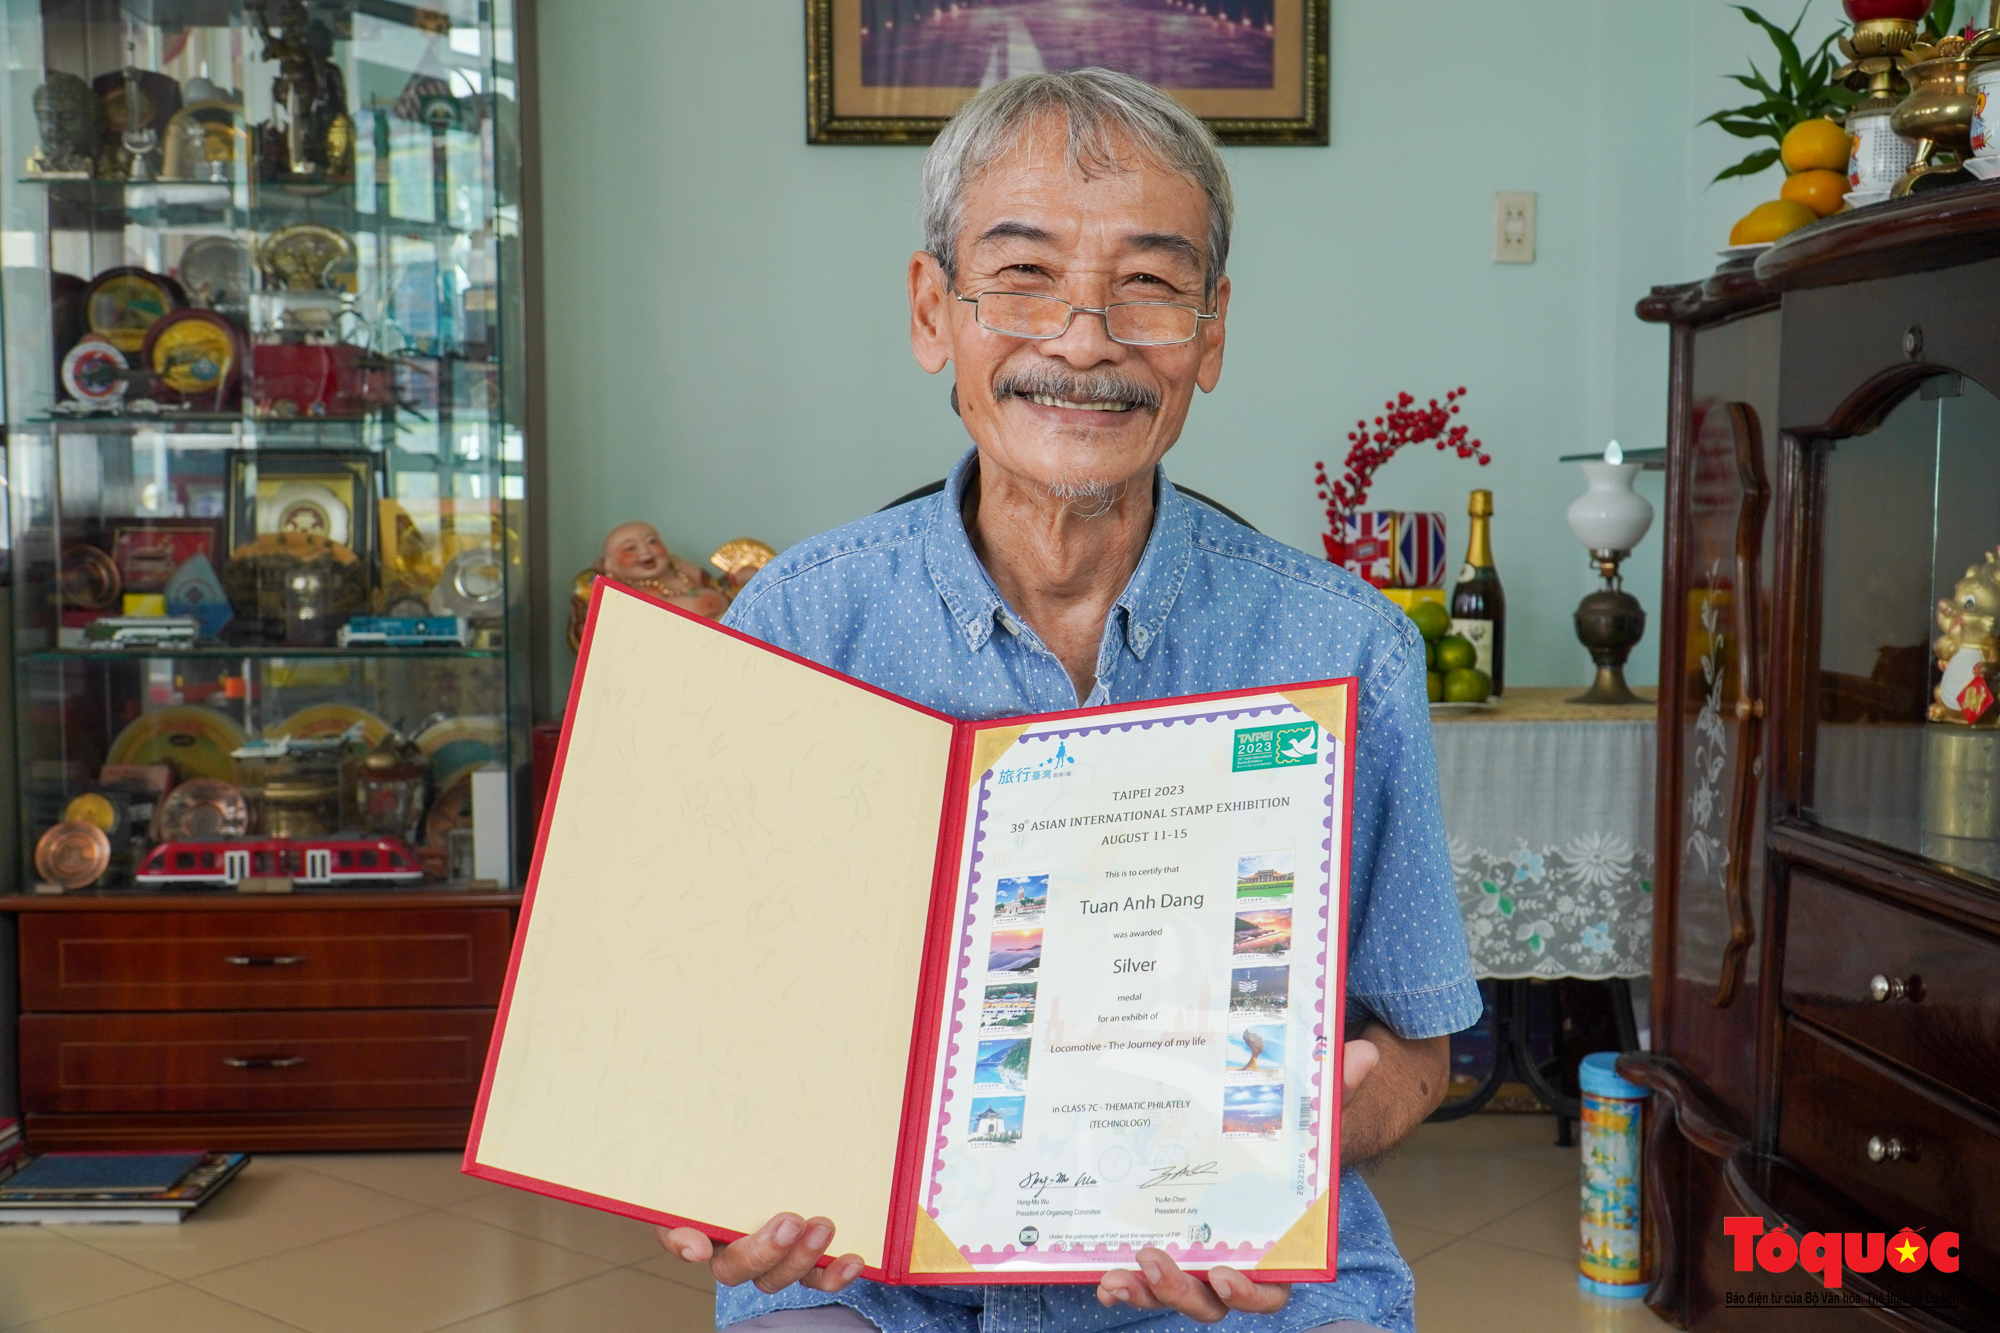 旅行臺灣
TAIPEI
2023
TAIPEI 2023
39th ASIAN INTERNATIONAL STAMP EXHIBITION
AUGUST 11-15
This is to certify that
Tuan Anh Dang
was awarded
Silver
medal
for an exhibit of
Locomotive - The Journey of my life
in CLASS 7C - THEMATIC PHILATELY
(TECHNOLOGY)
Hong-Mo Wu
President of Organizing Committee
Yu-An Chen
President of Jury
Under the patronage of FIAP and the recognize of FIP
20223026
Tổquốc
Báo điện tử của Bộ Văn hóa, Thể thao và Du lịch